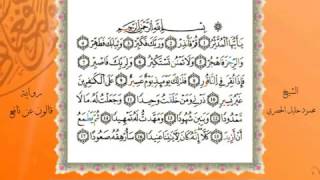 بِسْمِ اللَّهِ الرَّحْمَنِ الرَّحِيمِ
يَأَيُّهَا الْمُدَّثِّرُ ١ قُمْ فَأَنذِرْ ٢ وَرَبَّكَ فَكَبِّرْ ٣ وَثِيَابَكَ فَطَهِّرْ ٤
وَالرِّجْزَ فَاهْجُرْ ٥ وَلَا تَمْنُن تَسْتَكْثِرُ ٦ وَلِرَبِّكَ فَاصْبِرْ ٧
فَإِذَا نُقِرَ فِي النَّاقُورِ ٨ فَذَلِكَ يَوْمَئِذٍ يَوْمٌ عَسِيرٌ ٩ عَلَى الْكَفِرِينَ
غَيْرُ يَسِيرٍ ١٠ ذَرْنِي وَمَنْ خَلَقْتُ وَحِيدًا ١١ وَجَعَلْتُ لَهُ مَالًا
مَّمْدُودًا ١٢ وَبَنِينَ شُهُودًا ١٣ وَمَهَّدتُّ لَهُ تَمْهِيدًا ١٤ ثُمَّ يَطْمَعُ
أَنْ أَزِيدَ ١٥ كَلَّا إِنَّهُ كَانَ لِآيَتِنَا عَنِيدًا ١٦ سَأُرْهِقُهُ صَعُودًا ١٧
الشيخ
محمود خليل الحصري
رواية
قالون عن نافع